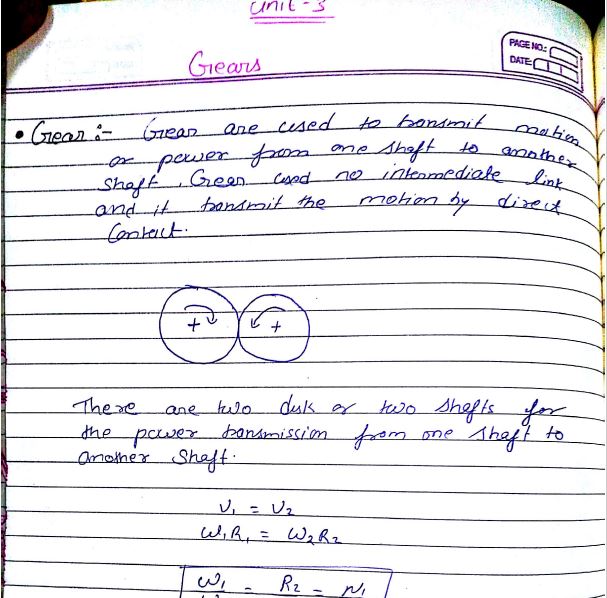 Unit-3
PAGE NO.:
DATE:
Gears
• Gear :- Gear are used to transmit motion
or power from one shaft to another
shaft, Gear used no intermediate link
and it transmit the motion by direct
Contact.
+ +
There are two disk or two shafts for
the power transmission from one shaft to
another shaft.
V₁ = V₂
ω₁R₁ = ω₂R₂
ω₁ = R₂ = N₁